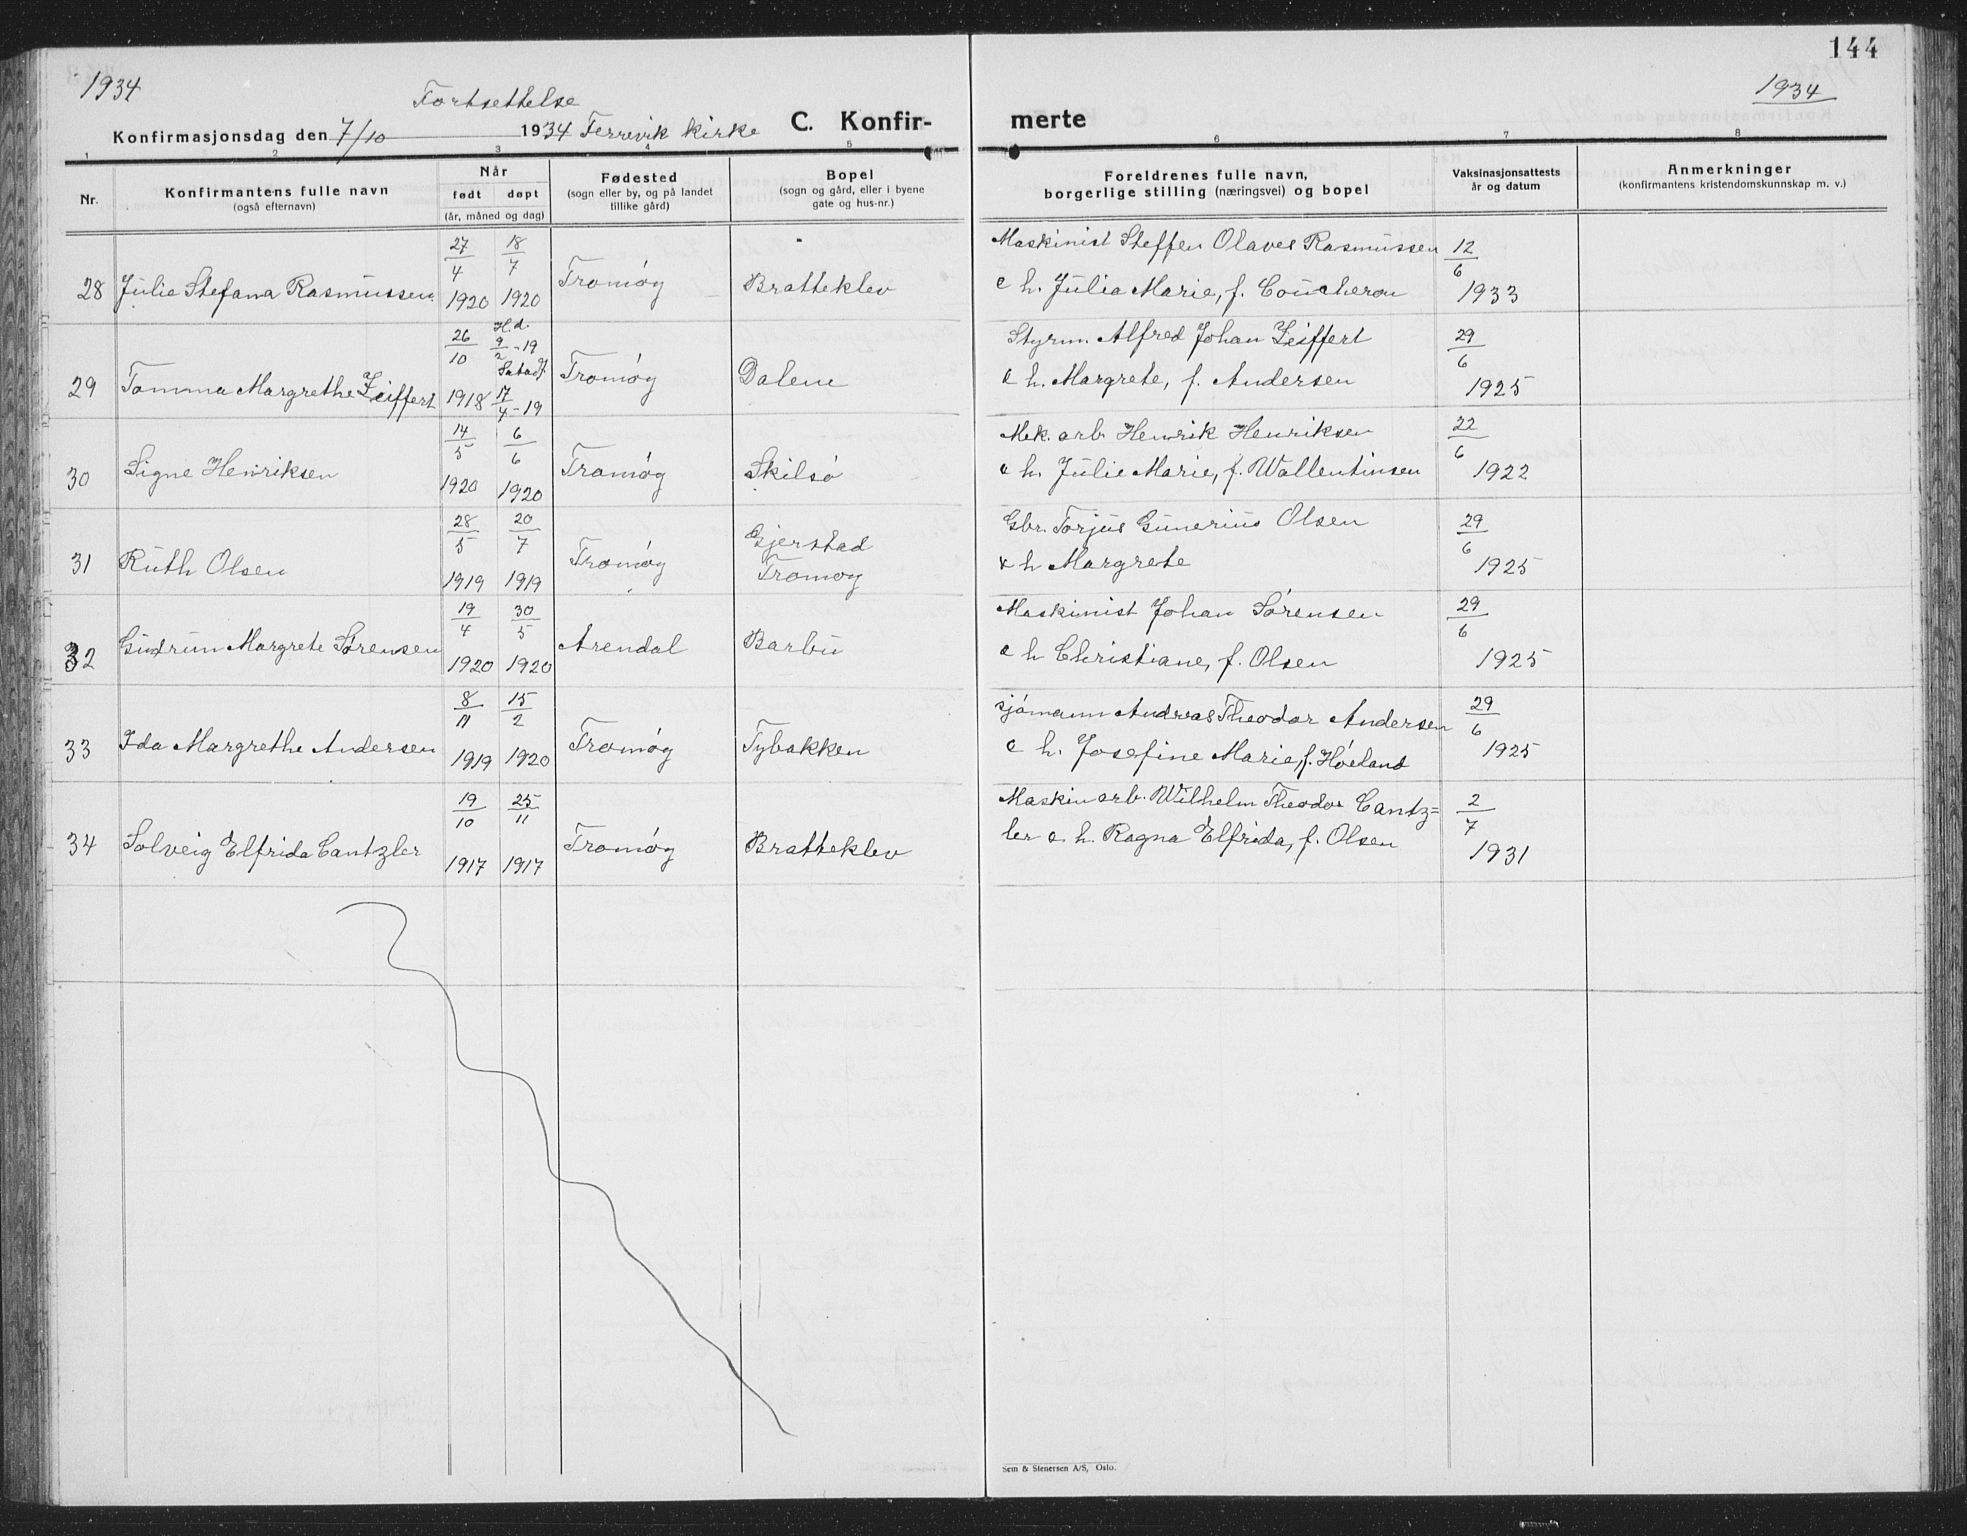 144
1934
1934
Fortsettelse
Konfirmasjonsdag den 7/10 1934 Færevik Kirke C. Konfir- merte
1 2 3 4 5 6 7 8
Nr.
Konfirmantens fulle navn
(også efternavn)
Når
født døpt
(år, måned og dag)
Fødested
(sogn eller by, og på landet
tillike gård)
Bopel
(sogn og gård, eller i byene
gate og hus-nr.)
Foreldrenes fulle navn,
borgerlige stilling (næringsvei) og bopel
Vaksinasjonsattests
år og datum
Anmerkninger
(konfirmantens kristendomskunnskap m. v.)
27/4 18/7 Maskinist Steffen Olaves Rasmussen 12/6
28 Julie Stefana Rasmussen 1920 1920 Tromøy Bratteklev e h. Julia Marie, f. Coucheron 1933
26/10 H.d. 9/2-19 Styrm. Alfred Johan Zeiffert 29/6
29 Tomma Margrethe Zeiffert 1918 17/4-19 Tromøy Dalene & h. Margrete, f. Andersen 1925
14/5 6/6 Mek. arb. Henrik Henriksen 22/6
30 Signe Henriksen 1920 1920 Tromøy Skilsø & h. Julie Marie, f. Wallentinsen 1922
28/5 20/7 Gbr. Torjus Gunerius Olsen 29/6
31 Ruth Olsen 1919 1919 Tromøy Gjerstad Tromøy & h Margrete 1925
19/4 30/5 Maskinist Johan Sørensen 29/6
32 Gudrun Margrete Sørensen 1920 1920 Arendal Barbu & h Christiane, f. Olsen 1925
8/11 15/2 sjømann Andreas Theodor Andersen 29/6
33 Ida Margrethe Andersen 1919 1920 Tromøy Tybakken & h. Josefine Marie, f. Høeland 1925
19/10 25/11 Maskinarb. Wilhelm Theodor Cantz= 2/7
34 Solveig Elfrida Cantzler 1917 1917 Tromøy Bratteklev ler & h. Ragna Elfrida, f. Olsen 1931
Sem & Stenersen A/S, Oslo.